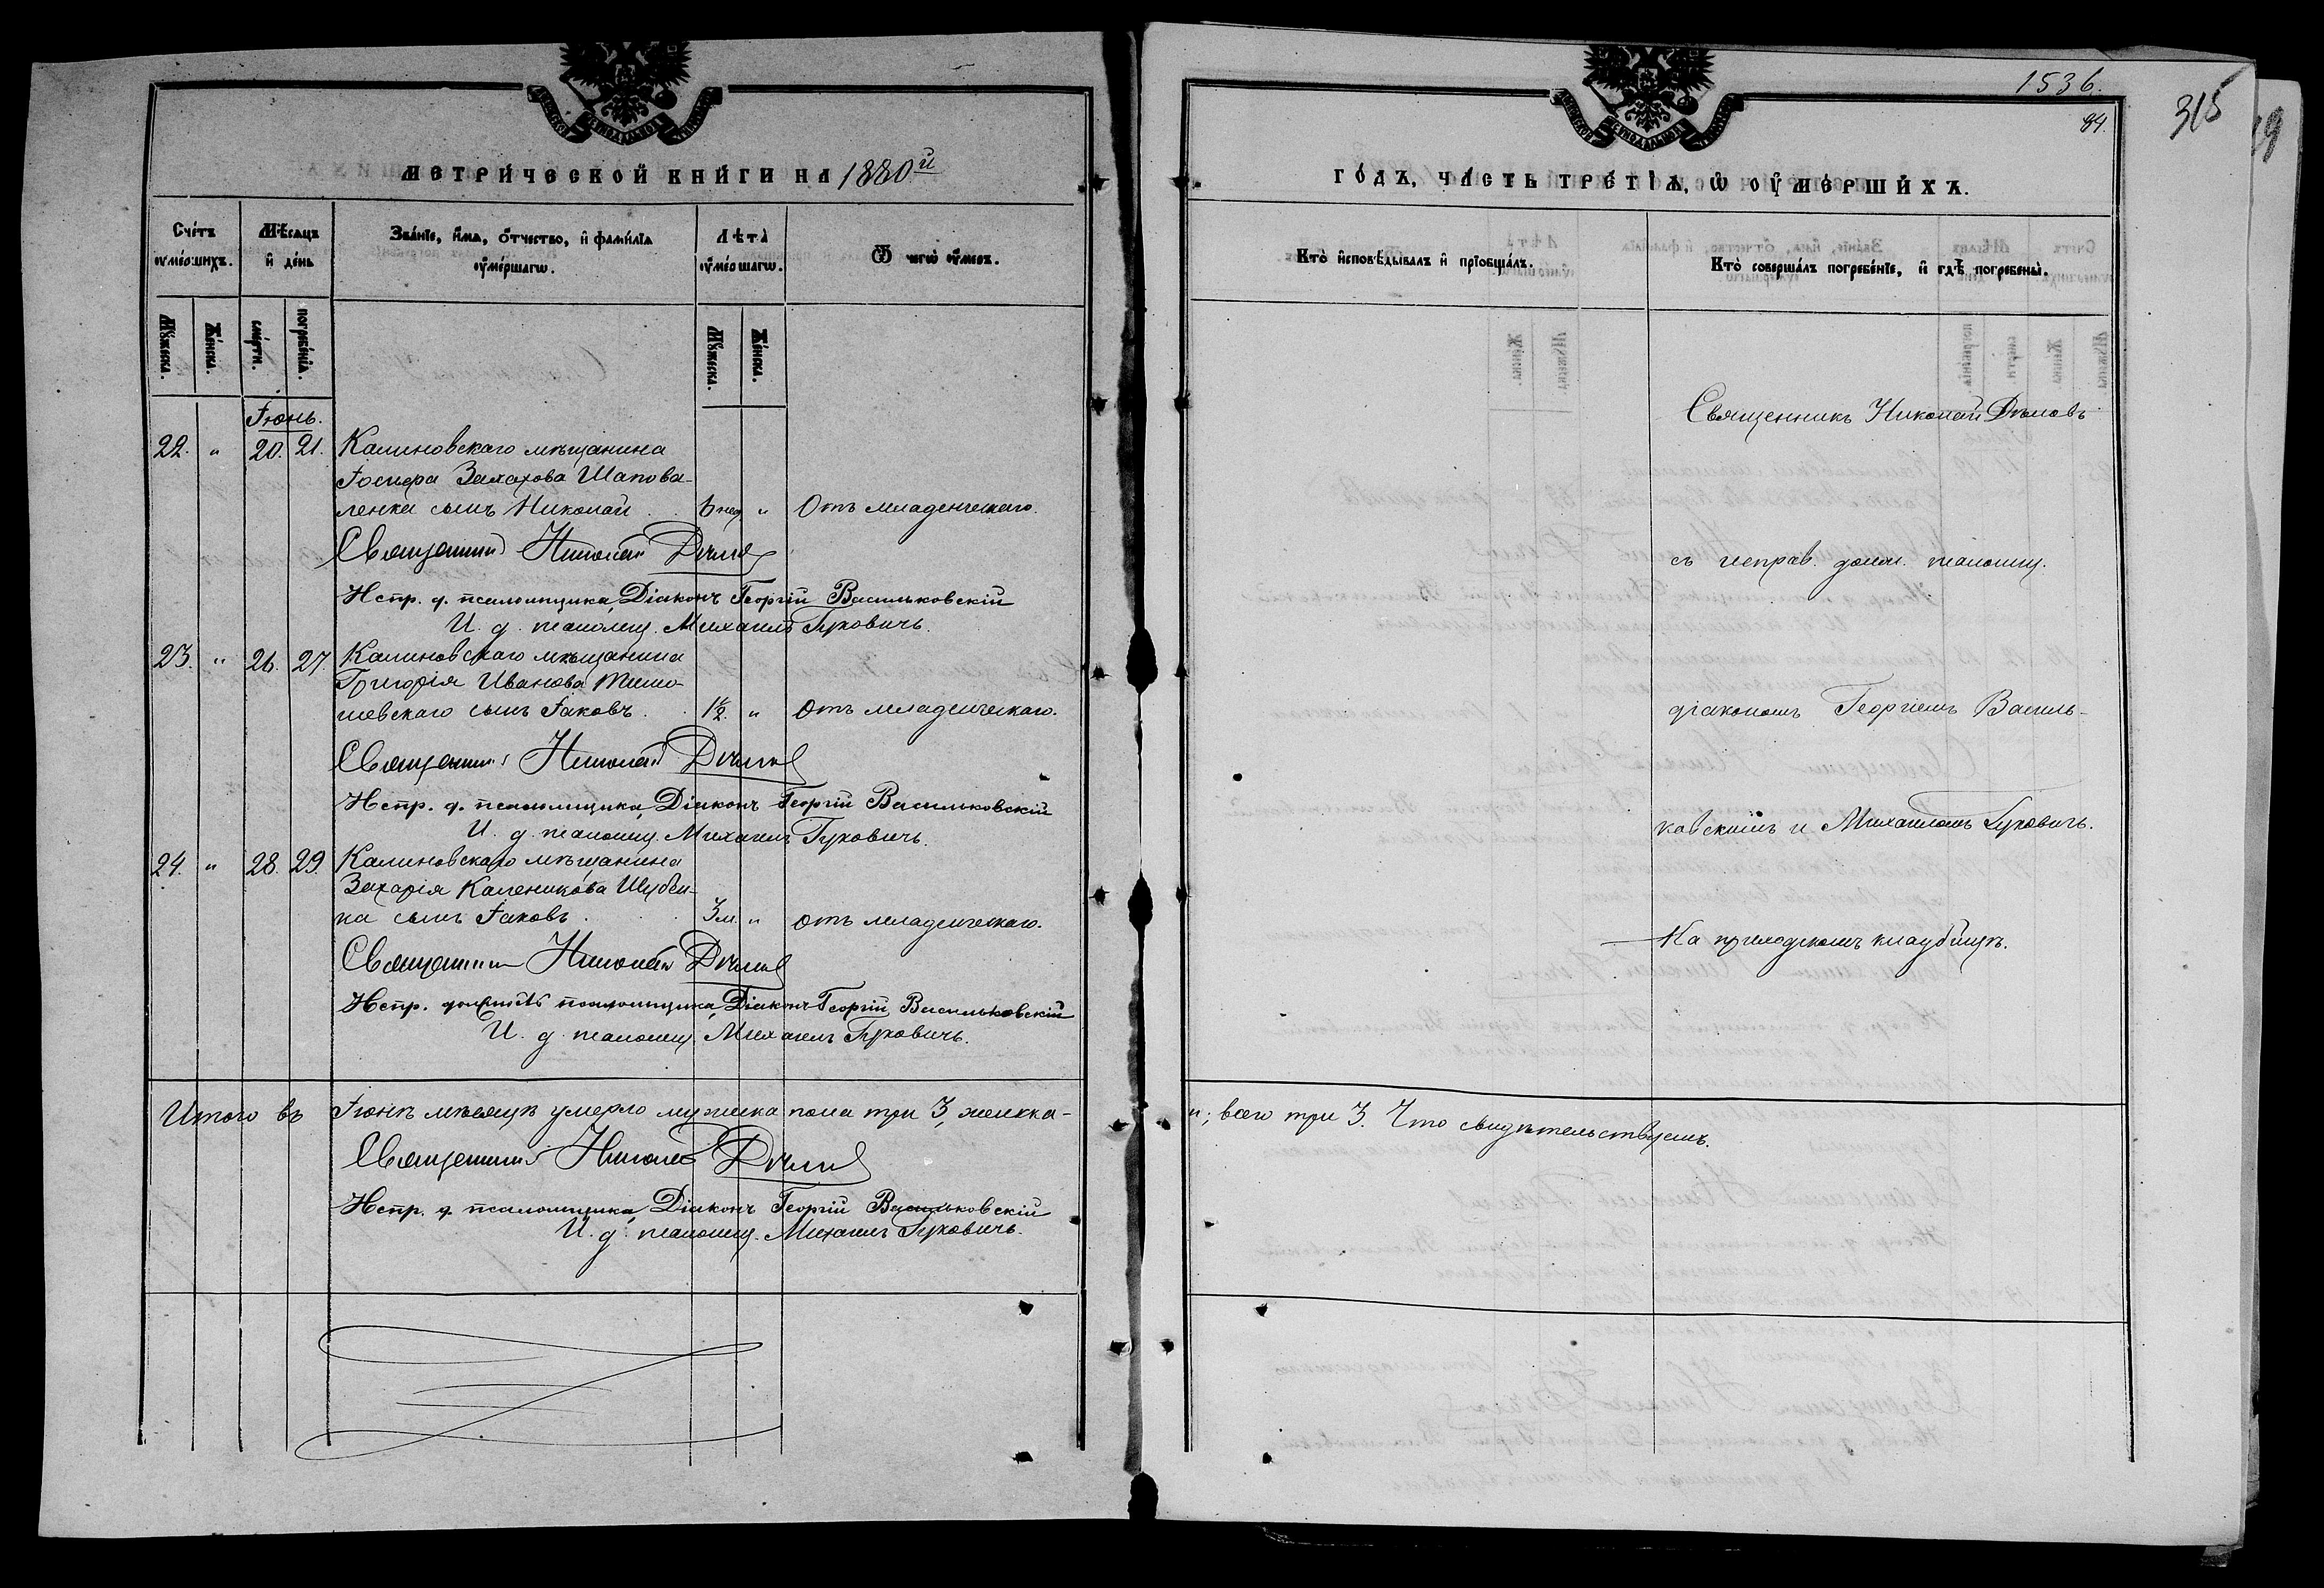 МЕТРИЧЕСКОЙ КНИГИ НА 1880й
Счетъ умершихъ.
Мѣсяцъ и день
Званіе, имя, отчество, и фамилія умершагω.
Лѣта умершагω.
Ѿ чегω умеръ.
Мужеска.
Женска.
смерти.
погребенія.
Мужеска.
Женска.
Іюнь.
22. " 20. 21. Калиновскаго мѣщанина
Іосифа Захахова Шапова-
ленка сынъ Николай . 6 нед " Отъ младенческаго.
Священникъ Николай
Испр. д. псаломщика, Діаконъ Георгій Васильковскій
И. д. псаломщ. Михаилъ Гуковичъ.
23. " 26. 27. Калиновскаго мѣщанина
Григорія Иванова
шевскаго сынъ Іаковъ . . 1½. " Отъ младенческаго.
Священникъ Николай
Испр. д. псаломщика, Діаконъ Георгій Васильковскій
И. д. псаломщ. Михаилъ Гуковичъ.
24. " 28. 29. Калиновскаго мѣщанина
Захарія Каленикова Шубен-
ка сынъ Іаковъ . . 3 м. " отъ младенческаго.
Священникъ Николай
Испр. должность псаломщика, Діаконъ Георгій Васильковскій
И. д. псаломщ. Михаилъ Гуковичъ.
Итого въ Іюнѣ мѣсяцѣ умерло мужска пола три 3, женска-
Священникъ Николай
Испр. д. псаломщика, Діаконъ Георгій Васильковскій
И. д. псаломщ. Михаилъ Гуковичъ.
1536.
84.
315
ГОДЪ, ЧАСТЬ ТРЕТІЯ, Ѡ УМЕРШИХЪ.
Кто исповѣдывалъ и пріобщалъ.
Кто совершалъ погребеніе, и гдѣ погребены.
Священникъ Николай
съ исправ. долж. псаломщ.
діакономъ Георгіемъ Василь-
ковскимъ и Михаиломъ Гуковичъ.
На приходскомъ кладбищѣ.
"; всего три 3. Что свидѣтельствуемъ.